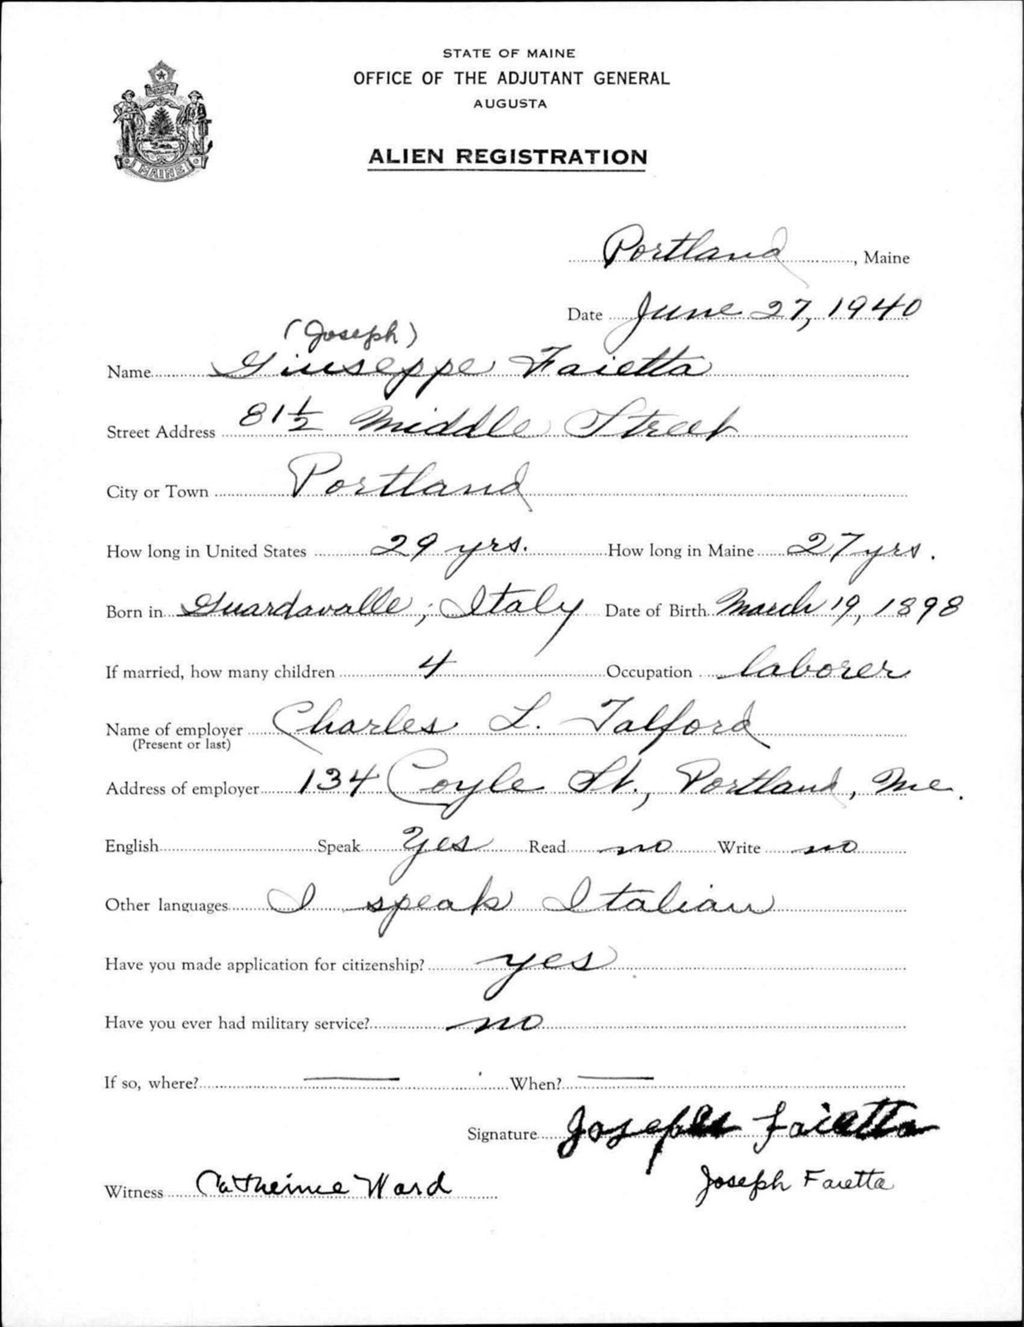 STATE OF MAINE
OFFICE OF THE ADJUTANT GENERAL
AUGUSTA
ALIEN REGISTRATION
MAINE
Portland, Maine
Date June 27, 1940
(Joseph)
Name Giuseppe Faietta
Street Address 81 1/2 Middle Street
City or Town Portland
How long in United States 29 yrs. How long in Maine 27 yrs.
Born in Guardavalle, Italy Date of Birth March 19, 1898
If married, how many children 4 Occupation laborer
Name of employer Charles L. Talford
(Present or last)
Address of employer 134 Coyle St., Portland, Me.
English Speak Yes Read no Write no
Other languages I speak Italian
Have you made application for citizenship? yes
Have you ever had military service? no
If so, where? — When? —
Signature Joseph Faietta
Witness Catherine Ward Joseph Faietta